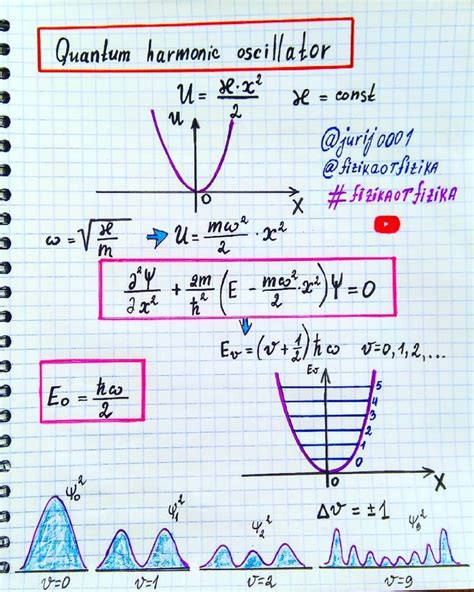 Quantum harmonic oscillator
U = ϰ·x²/2   ϰ = const
U
0
X
@jurij0001
@fizikaotfizika
#fizikaotfizika
ω = √(ϰ/m) → U = mω²/2 · x²
∂²Ψ/∂x² + 2m/ħ² (E − mω²/2 · x²) Ψ = 0
E_v = (v + 1/2) ħω   v = 0, 1, 2, ...
E₀ = ħω/2
E_v
5
4
3
2
1
0
0
X
Δv = ±1
ψ₀²
ψ₁²
ψ₂²
ψ₉²
v=0
v=1
v=2
v=9